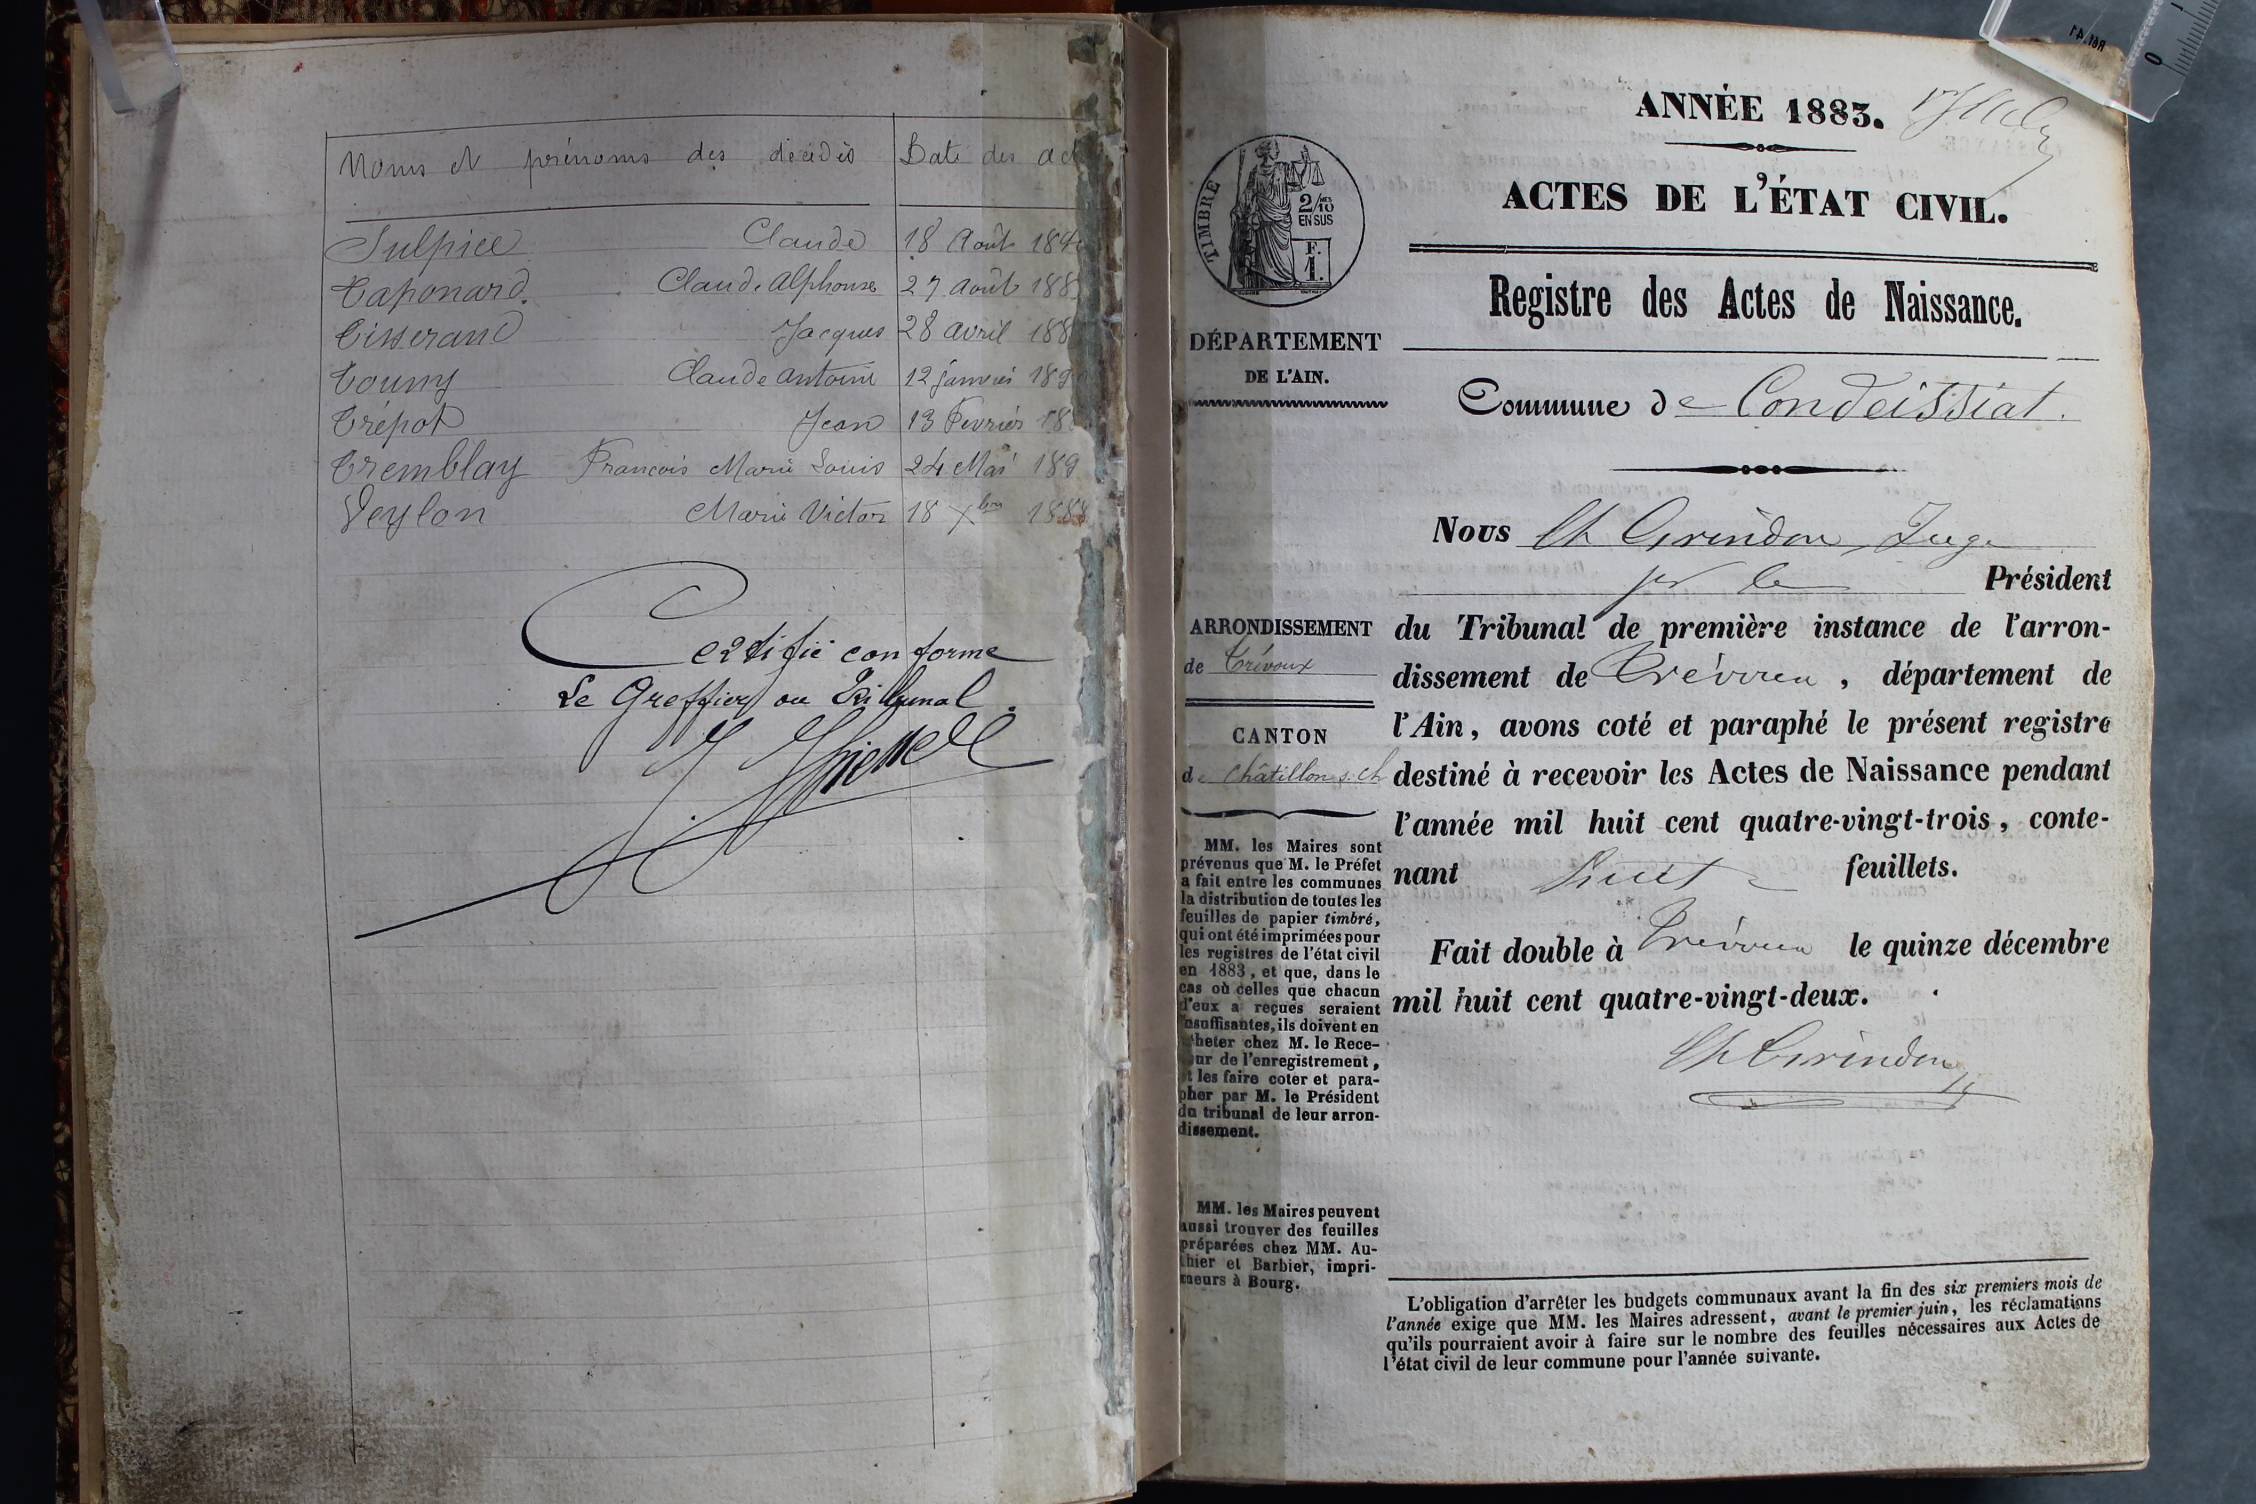 Noms et prénoms des décédés Date des act
Sulpice Claude 18 Août 189
Taponard Claude Alphonse 27 Août 188
Tisserand Jacques 28 avril 188
Toumy Claude Antoine 12 janvier 189
Trépot Jean 13 Fevrier 18
Tremblay Francois Marie Louis 24 Mai 189
Veylon Marie Victor 18 Xbre 1888
Certifié conforme
Le Greffier du Tribunal.
ANNÉE 1883.
ACTES DE L'ÉTAT CIVIL.
TIMBRE
2/10 MES
EN SUS
F.
1.
Registre des Actes de Naissance.
DÉPARTEMENT
DE L'AIN.
Commune de Condeissiat.
Nous Ch Grindon, Juge
pr le Président
ARRONDISSEMENT
de Trévoux
CANTON
de Châtillon s. Ch
du Tribunal de première instance de l'arron-
dissement de Trévoux, département de
l'Ain, avons coté et paraphé le présent registre
destiné à recevoir les Actes de Naissance pendant
l'année mil huit cent quatre-vingt-trois, conte-
nant huit feuillets.
Fait double à Trévoux le quinze décembre
mil huit cent quatre-vingt-deux.
Ch Grindon
MM. les Maires sont
prévenus que M. le Préfet
a fait entre les communes
la distribution de toutes les
feuilles de papier timbré,
qui ont été imprimées pour
les registres de l'état civil
en 1883, et que, dans le
cas où celles que chacun
d'eux a reçues seraient
insuffisantes, ils doivent en
acheter chez M. le Rece-
veur de l'enregistrement,
et les faire coter et para-
pher par M. le Président
du tribunal de leur arron-
dissement.
MM. les Maires peuvent
aussi trouver des feuilles
préparées chez MM. Au-
thier et Barbier, impri-
meurs à Bourg.
L'obligation d'arrêter les budgets communaux avant la fin des six premiers mois de
l'année exige que MM. les Maires adressent, avant le premier juin, les réclamations
qu'ils pourraient avoir à faire sur le nombre des feuilles nécessaires aux Actes de
l'état civil de leur commune pour l'année suivante.